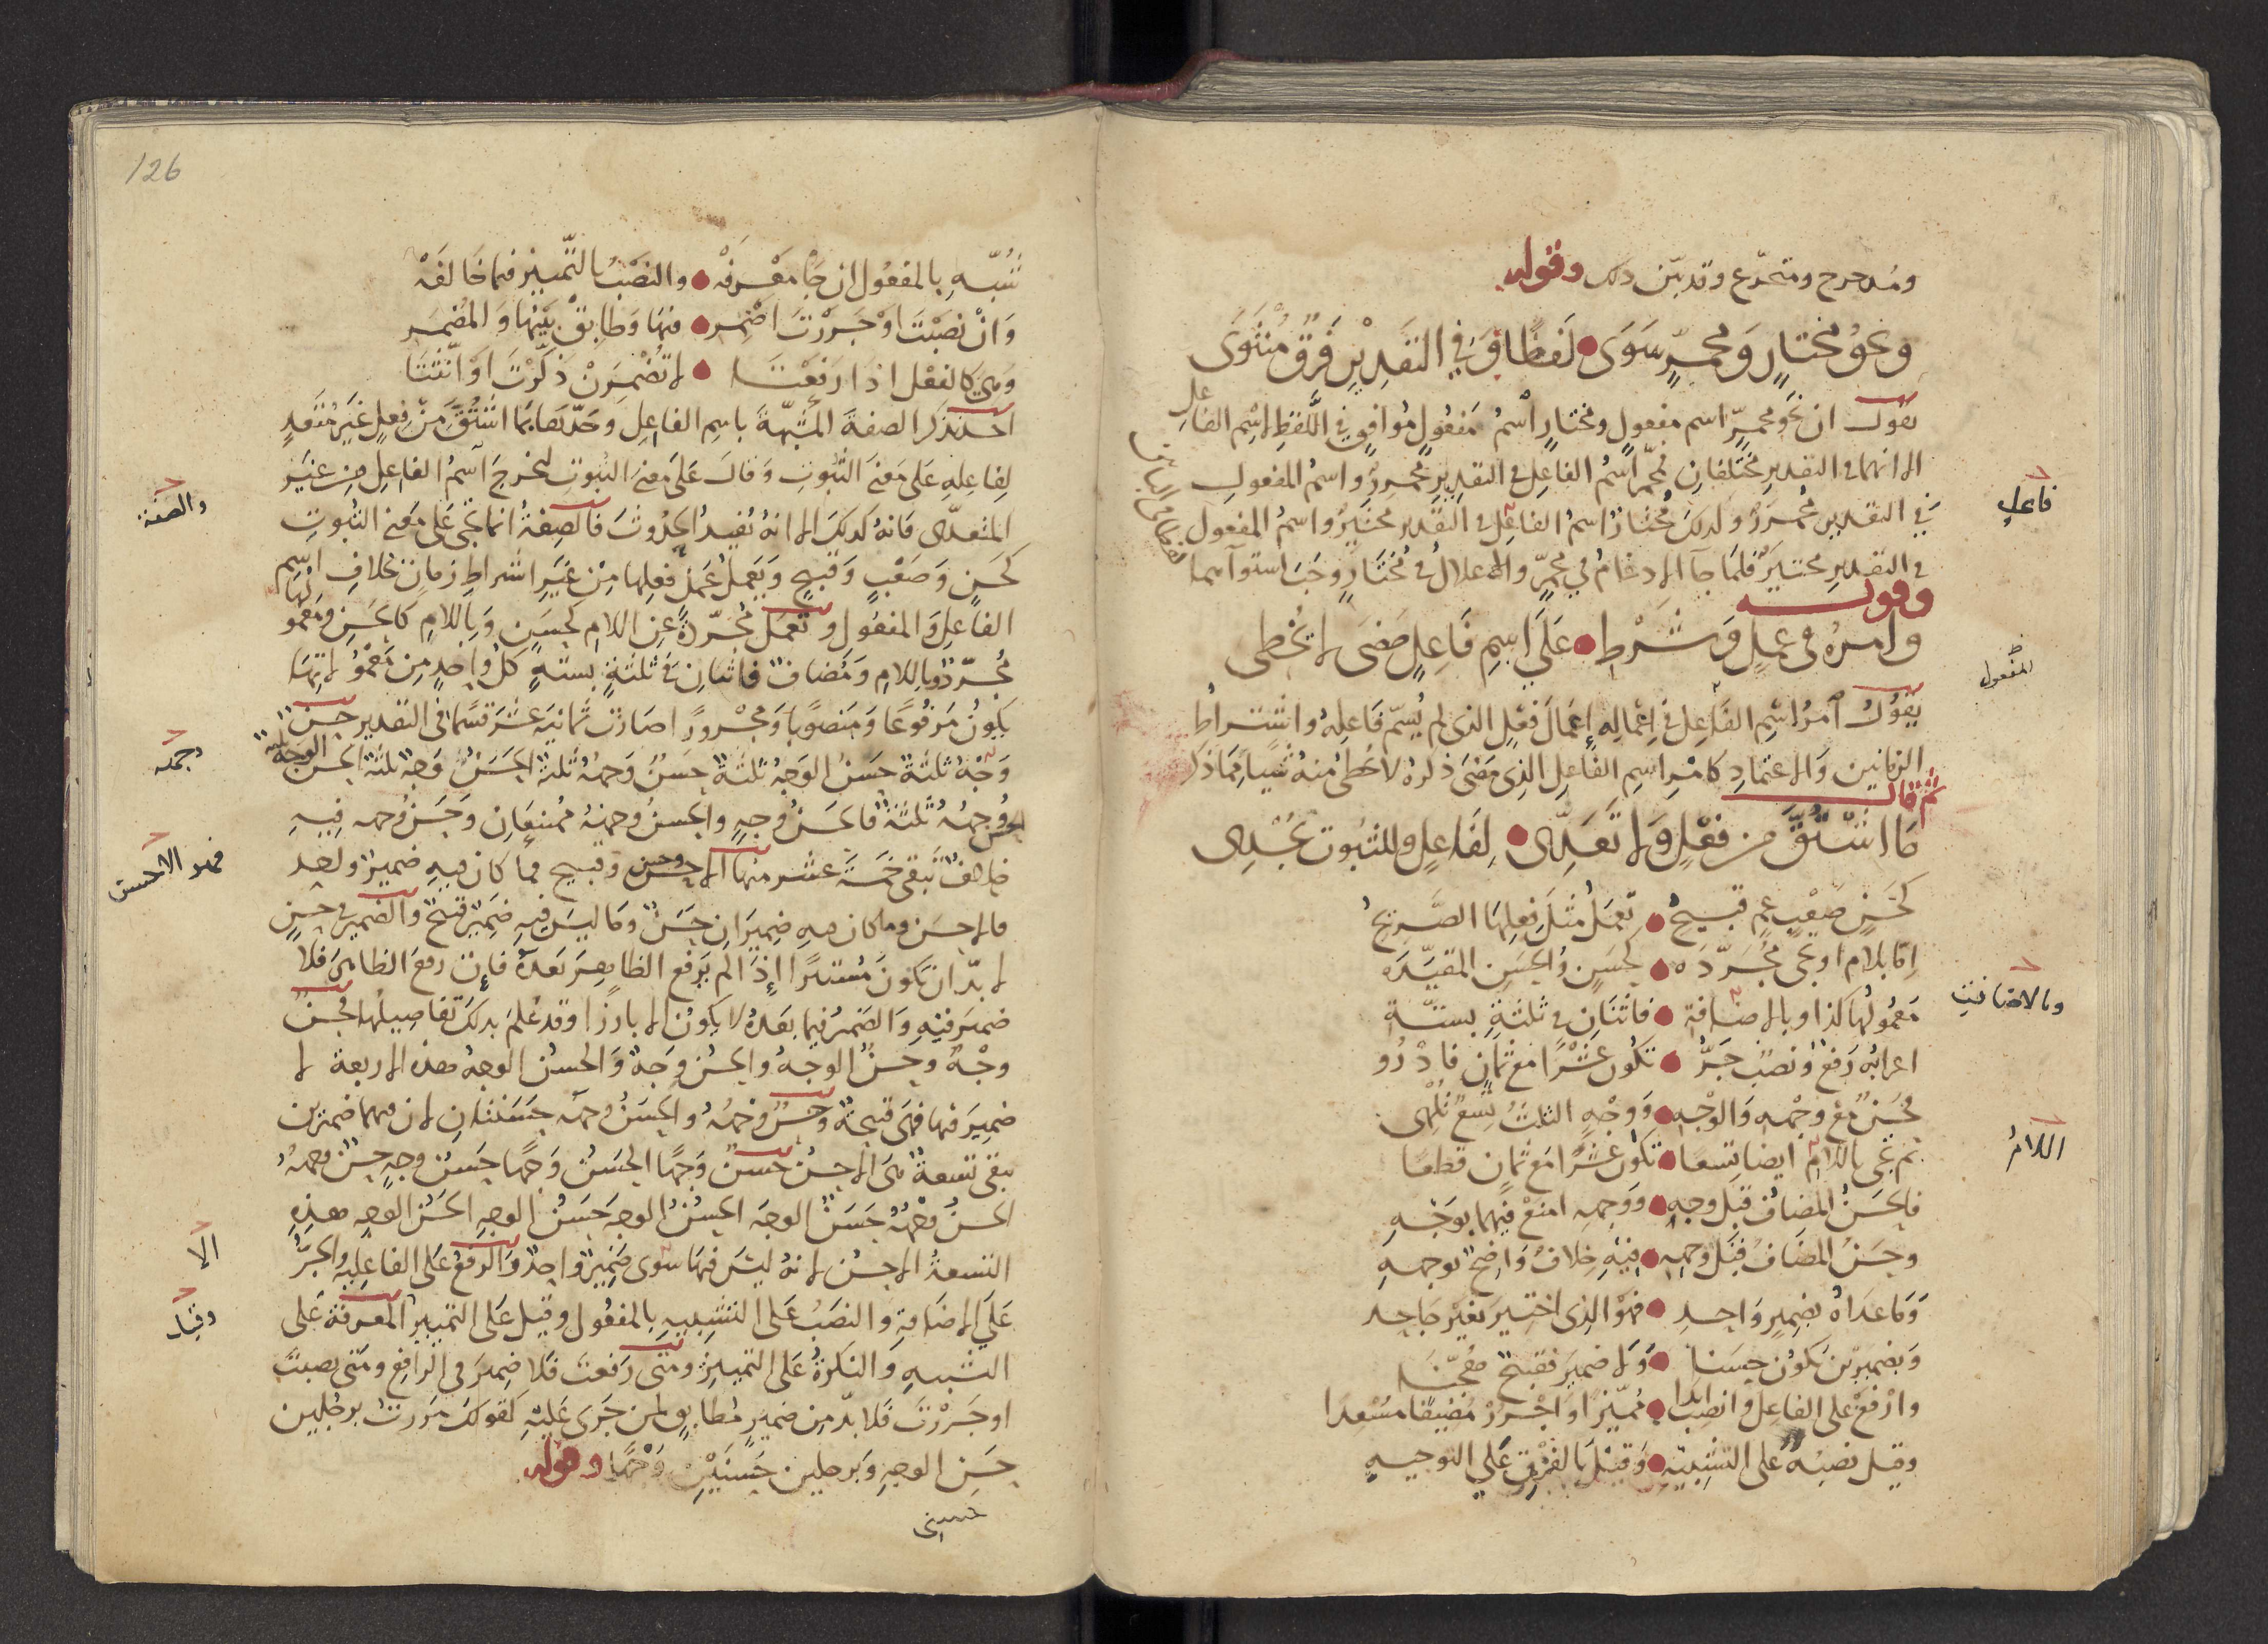 ومدحرج ومتحرّع وقد بيّن ذلك وقوله
ونحوُ مختارٍ ومحمرٍّ سَوَى لَفظًا وَفي التقديرِ فَرقٌ مُنتَوَى
يقول ان نحو محمرٍّ اسم مفعولٍ ومختارٍ اسمُ مَفعُولٍ مُوافقٍ في اللَّفظِ لاسْمِ الفاعل
الا انهما في التقدير مختلفانِ فمحمرّ اسمُ الفاعِل في التقدِيرِ محمرِرٌ واسمُ المفعولِ
في التقديرِ محمرَرٌ وكذلك مُختارٌ اسمُ الفاعِل في التقدير مختيِرٌ واسمُ المفعول
في التقديرِ مختيَرٌ فلما جآ الادغامُ في محمرٍّ والاعلالُ في مُختارٍ وجَبَ استوآهما
وقوله
وامرُهُ في عملٍ وشَرْطِ عَلَى اسمِ فَاعِلٍ مَضَى لا تُخطِى
يقولُ امرُ اسْمِ الفَاعِل في اِعمالِهِ إعمَالَ فعْلِ الذى لم يُسَمّ فَاعِلُهُ واشتراطِ
الزمانين والاعتمادِ كامْرِ اسمِ الفاعِل الذِى مَضَى ذكرهُ لا تُخطِى منهُ شيأ مِمّا ذكر
ثم قال
مَا اشْتُقَّ من فعْلٍ وَلا تَعَدِّى لِفَاعِلٍ وللثبُوت يُجْدِى
كحَسَنٍ صَعْبٍ عمٍ قبيحُ تعمَلُ مثلَ فِعلِهَا الصَّريحُ
إمّا بلامٍ او تجى مُجَرَّدَه كحَسَنٍ والحَسَنِ المقيَّدَه
مَعمُولُها كذا وبالاضافة فاثنَانِ في ثلثةٍ بستّة
اعرابُه رَفعٌ ونصبٌ جَرُّ تكون عَشْرًا مع ثمانٍ فادْرُو
فحَسَنٌ مع وجْهه والوجْهِ وَوجْهٍ الثلثُ تِسعٌ تُلْهى
ثم تجى باللام ايضا تِسعا تكون عشْرًا مع ثمانٍ قطعًا
فالحَسَنُ المضافُ قبل وجهٍ ووجهِه امنَعْ فيهما بوَجْهِ
وحسَنُ المضَافُ قبْلَ وجهِهِ فيْهِ خلافٌ وَاضِحٌ بوجههِ
وَما عدَاهُ بضمِيرٍ وَاحدِ فهْوَ الذِى اختِيرَ بغيْرِ جَاحدِ
وَبضميريْن يكُونُ حسَنا وَلا ضميرَ فقبيحٌ
وارْفَعْ على الفاعلِ وانصِب ابدا مُميّزًا وَاجْرُرْ مُضِيفًا مُسْعدا
وقيل نصبُهُ على التشبيْهِ وَقيْلَ بالفَرْقِ عَلى التوجيهِ
فاعل
المفعول
وبالاضافة
اللامُ
126
شُبّه بالمفعُولِ ان جَا مَعْرِفَهْ والنصْبُ بالتّمييز فيما خَالَفَهْ
وَانْ نصَبْتَ اوْ جَرَرْتَ اضْمِرِ فيها وَطابِقْ بَيْنها وَالمُضمَرِ
وَهي كالفعْل اذا رفَعْتَا لا تُضْمِرَنْ ذَكَّرْتَ اوْ انَّثْتَا
اخذ يذكر الصفةَ المشبّهةَ باسِم الفاعِل وحَدّها بمَا اشتُقَّ مِنْ فِعلٍ غيرِ مُتَعدٍ
لِفاعِلِهِ عَلَى مَعنَى الثبوتِ وَقالَ عَلَى مَعنَى الثبُوتِ ليَخرجَ اسمُ الفاعِلِ من غيرِ
المتعدّى فانهُ كذلكَ الا انهُ يُفيدُ الحدُوثَ فالصِفةُ انما تجى عَلَى مَعنى الثبُوتِ
كحَسَنٍ وَصَعْبٍ وَقبيحٍ وَيَعملُ عَمَلَ فعلِها مِنْ غَيرِ اشراطِ زمانٍ بخلافِ اسم
الفاعِل وَالمفعُول وتعمل مُجرّدةً عن اللام كحَسَنٍ وَباللامِ كالحَسَنِ ومَعمُولُها
مجرّدٌ وباللامِ وَمُضافٌ فاثنانِ في ثلثةٍ بستةٍ كلُ واحدٍ مِن مَعمُولاتِها
يكونُ مَرفُوعًا وَمَنصُوبًا وَمجْرورًا صَارَت ثمانيَةَ عشَرَ قسْمًا في التقدير حسنٌ
وَجْهٌ ثلثة حَسَنُ الوَجْه ثلثةٌ حَسَنٌ وَجهُهُ ثلثة الحَسَنُ وَجهٌ ثلثة الحسنُ الوجه ثلثة
الحسن وَجههُ ثلثةٌ فالحَسَنُ وجهٍ والحسنُ وجههِ ممتنعَانِ وَحَسَنُ وجههِ فيه
خلافٌ تبقى خمسَةَ عشر منها الاحسنُ وحسن وقبيح فما كان فيهِ ضميرٌ واحد
فالاحسَن وما كان فيهِ ضميرَانِ حَسَنٌ وَمَا ليسَ فيهِ ضَمِيرٌ قبيحٌ والضمير في حسنٍ
لا بدّ ان يكونَ مُستترًا إذا لم يَرفعِ الظاهِرَ بَعدَهُ فإن رفعَ الظاهرَ فلا
ضميرَ فيْهِ وَالضميرُ فيما بعدَهُ لا يكونُ الا بارزًا وقد عُلِمَ بذلكَ تفاصِيلُها فحَسنٌ
وجْهٌ وحسنٌ الوجهُ والحسَنُ وجهٌ والحسنُ الوجهُ هذه الاربعة لا
ضميرَ فيها فهى قبيحةٌ وحسنٌ وجهَهُ والحسَنُ وجهَه حَسَنتانِ لان فيهما ضميرين
تبقى تسعةٌ هىَ الاحسنُ حسنٌ وَجهًا الحَسَنُ وَجهًا حَسَنُ وجهٍ حسنٌ وجهُهُ
الحسنُ وجْهُهُ حَسَنٌ الوجهَ الحسَنُ الوجهَ حَسَنُ الوجهِ الحَسَنُ الوجهِ هذهِ
التسعةُ الاحسنُ لانهُ ليسَ فيهَا سوى ضَمِيرٍ واحدٍ وَالرفعُ عَلى الفاعِليه والجرُّ
عَلَى الاضَافةِ والنصَبُ عَلى التشبيهِ بالمفعُول وقيل عَلى التمييز المعرفةُ عَلى
التشبيه وَالنكرةُ عَلى التمييزِ ومتى رَفعتَ فَلا ضميرَ في الرافعِ ومتى نصبتَ
اوجَررْتَ فَلا بدّ مِن ضميرٍ مُطابقٍ لمن جَرى عَليْهِ كقولكَ مَررتُ برجُلين
حسَنىِ الوجهِ وَبرجلين حَسَنَيْنِ وَجْهًا وقوله
حسنى
والصفة
وجهه
فهو الاحسن
الا
وقيل